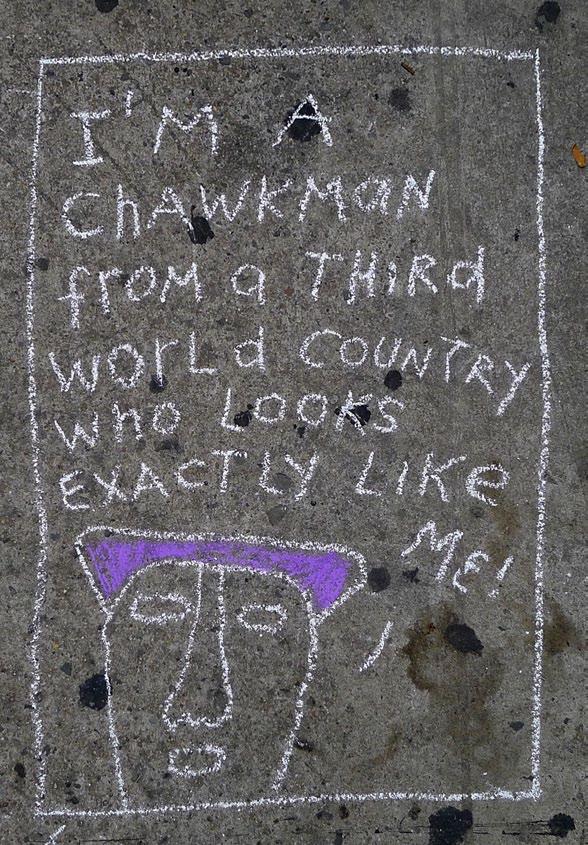 I'M A
ChAWKMaN
from a THiRd
WorLd COUNTRY
who LOOKS
EXACTLY LIKe
ME!